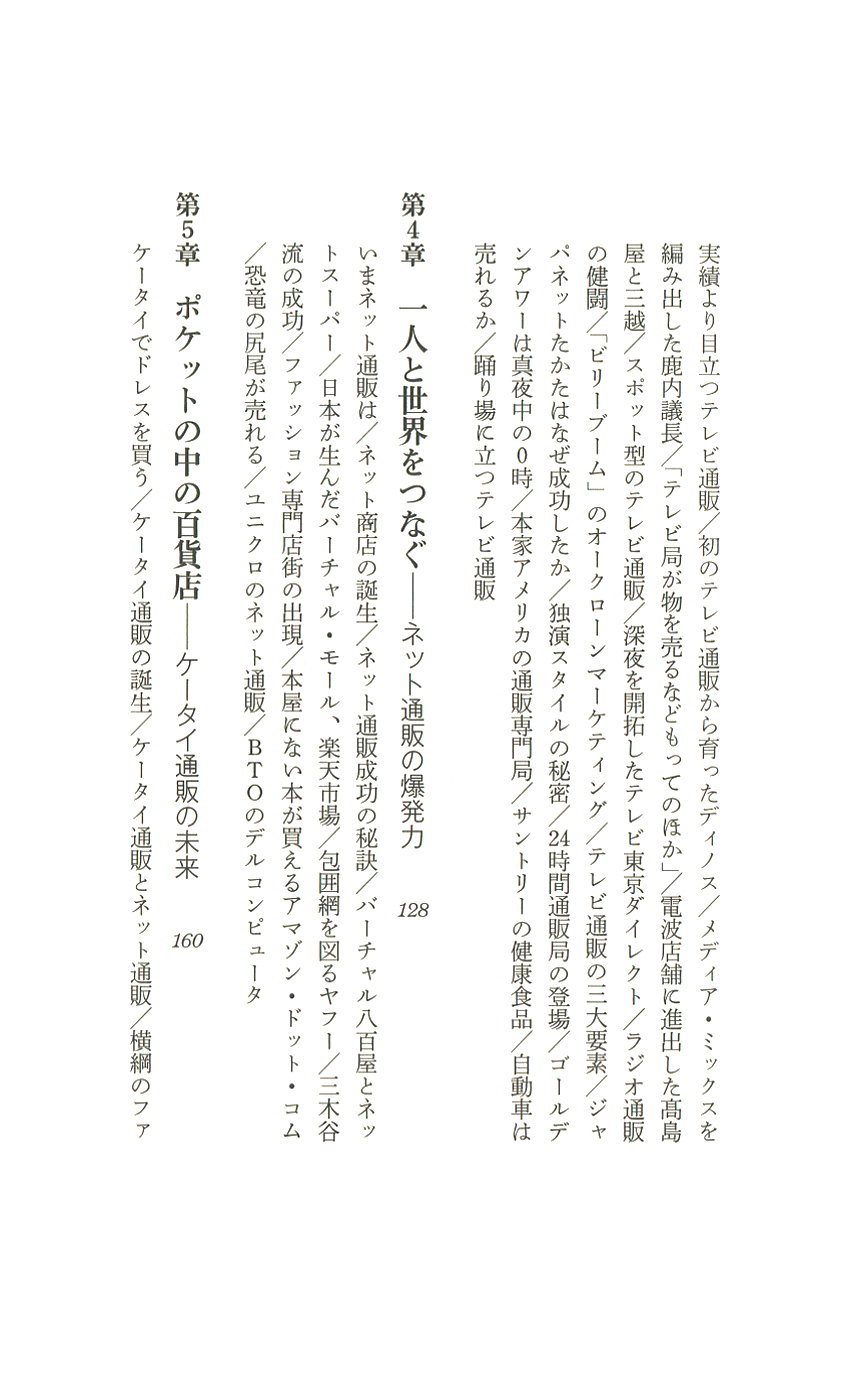 実績より目立つテレビ通販／初のテレビ通販から育ったディノス／メディア・ミックスを
編み出した鹿内議長／「テレビ局が物を売るなどもってのほか」／電波店舗に進出した髙島
屋と三越／スポット型のテレビ通販／深夜を開拓したテレビ東京ダイレクト／ラジオ通販
の健闘／「ビリーブーム」のオークローンマーケティング／テレビ通販の三大要素／ジャ
パネットたかたはなぜ成功したか／独演スタイルの秘密／24時間通販局の登場／ゴールデ
ンアワーは真夜中の0時／本家アメリカの通販専門局／サントリーの健康食品／自動車は
売れるか／踊り場に立つテレビ通販
第4章　一人と世界をつなぐ——ネット通販の爆発力　128
いまネット通販は／ネット商店の誕生／ネット通販成功の秘訣／バーチャル八百屋とネッ
トスーパー／日本が生んだバーチャル・モール、楽天市場／包囲網を図るヤフー／三木谷
流の成功／ファッション専門店街の出現／本屋にない本が買えるアマゾン・ドット・コム
／恐竜の尻尾が売れる／ユニクロのネット通販／BTOのデルコンピュータ
第5章　ポケットの中の百貨店——ケータイ通販の未来　160
ケータイでドレスを買う／ケータイ通販の誕生／ケータイ通販とネット通販／横綱のファ